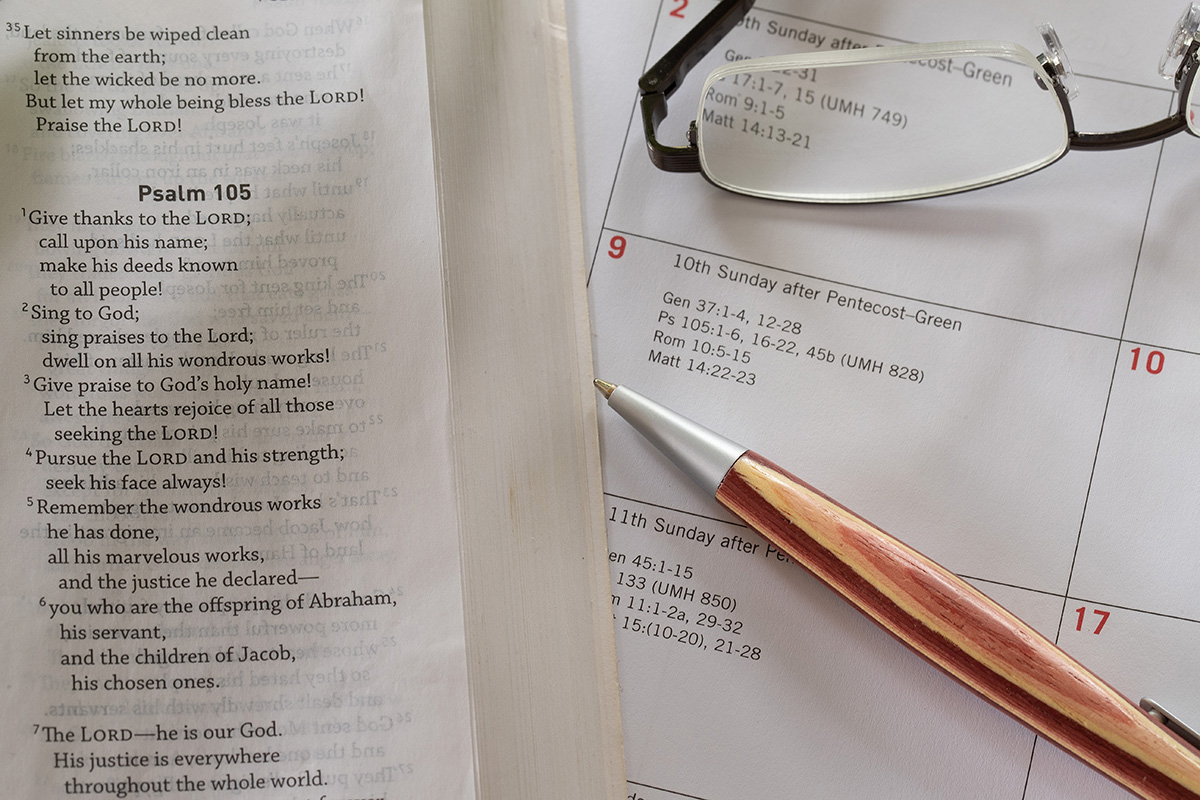 35 Let sinners be wiped clean
from the earth;
let the wicked be no more.
But let my whole being bless the LORD!
Praise the LORD!
Psalm 105
1 Give thanks to the LORD;
call upon his name;
make his deeds known
to all people!
2 Sing to God;
sing praises to the Lord;
dwell on all his wondrous works!
3 Give praise to God's holy name!
Let the hearts rejoice of all those
seeking the LORD!
4 Pursue the LORD and his strength;
seek his face always!
5 Remember the wondrous works
he has done,
all his marvelous works,
and the justice he declared—
6 you who are the offspring of Abraham,
his servant,
and the children of Jacob,
his chosen ones.
7 The LORD—he is our God.
His justice is everywhere
throughout the whole world.
2
Sunday after Pentecost–Green
17:1-7, 15 (UMH 749)
Rom 9:1-5
Matt 14:13-21
9
10th Sunday after Pentecost–Green
Gen 37:1-4, 12-28
Ps 105:1-6, 16-22, 45b (UMH 828)
Rom 10:5-15
Matt 14:22-23
10
11th Sunday after
45:1-15
133 (UMH 850)
11:1-2a, 29-32
15:(10-20), 21-28
17